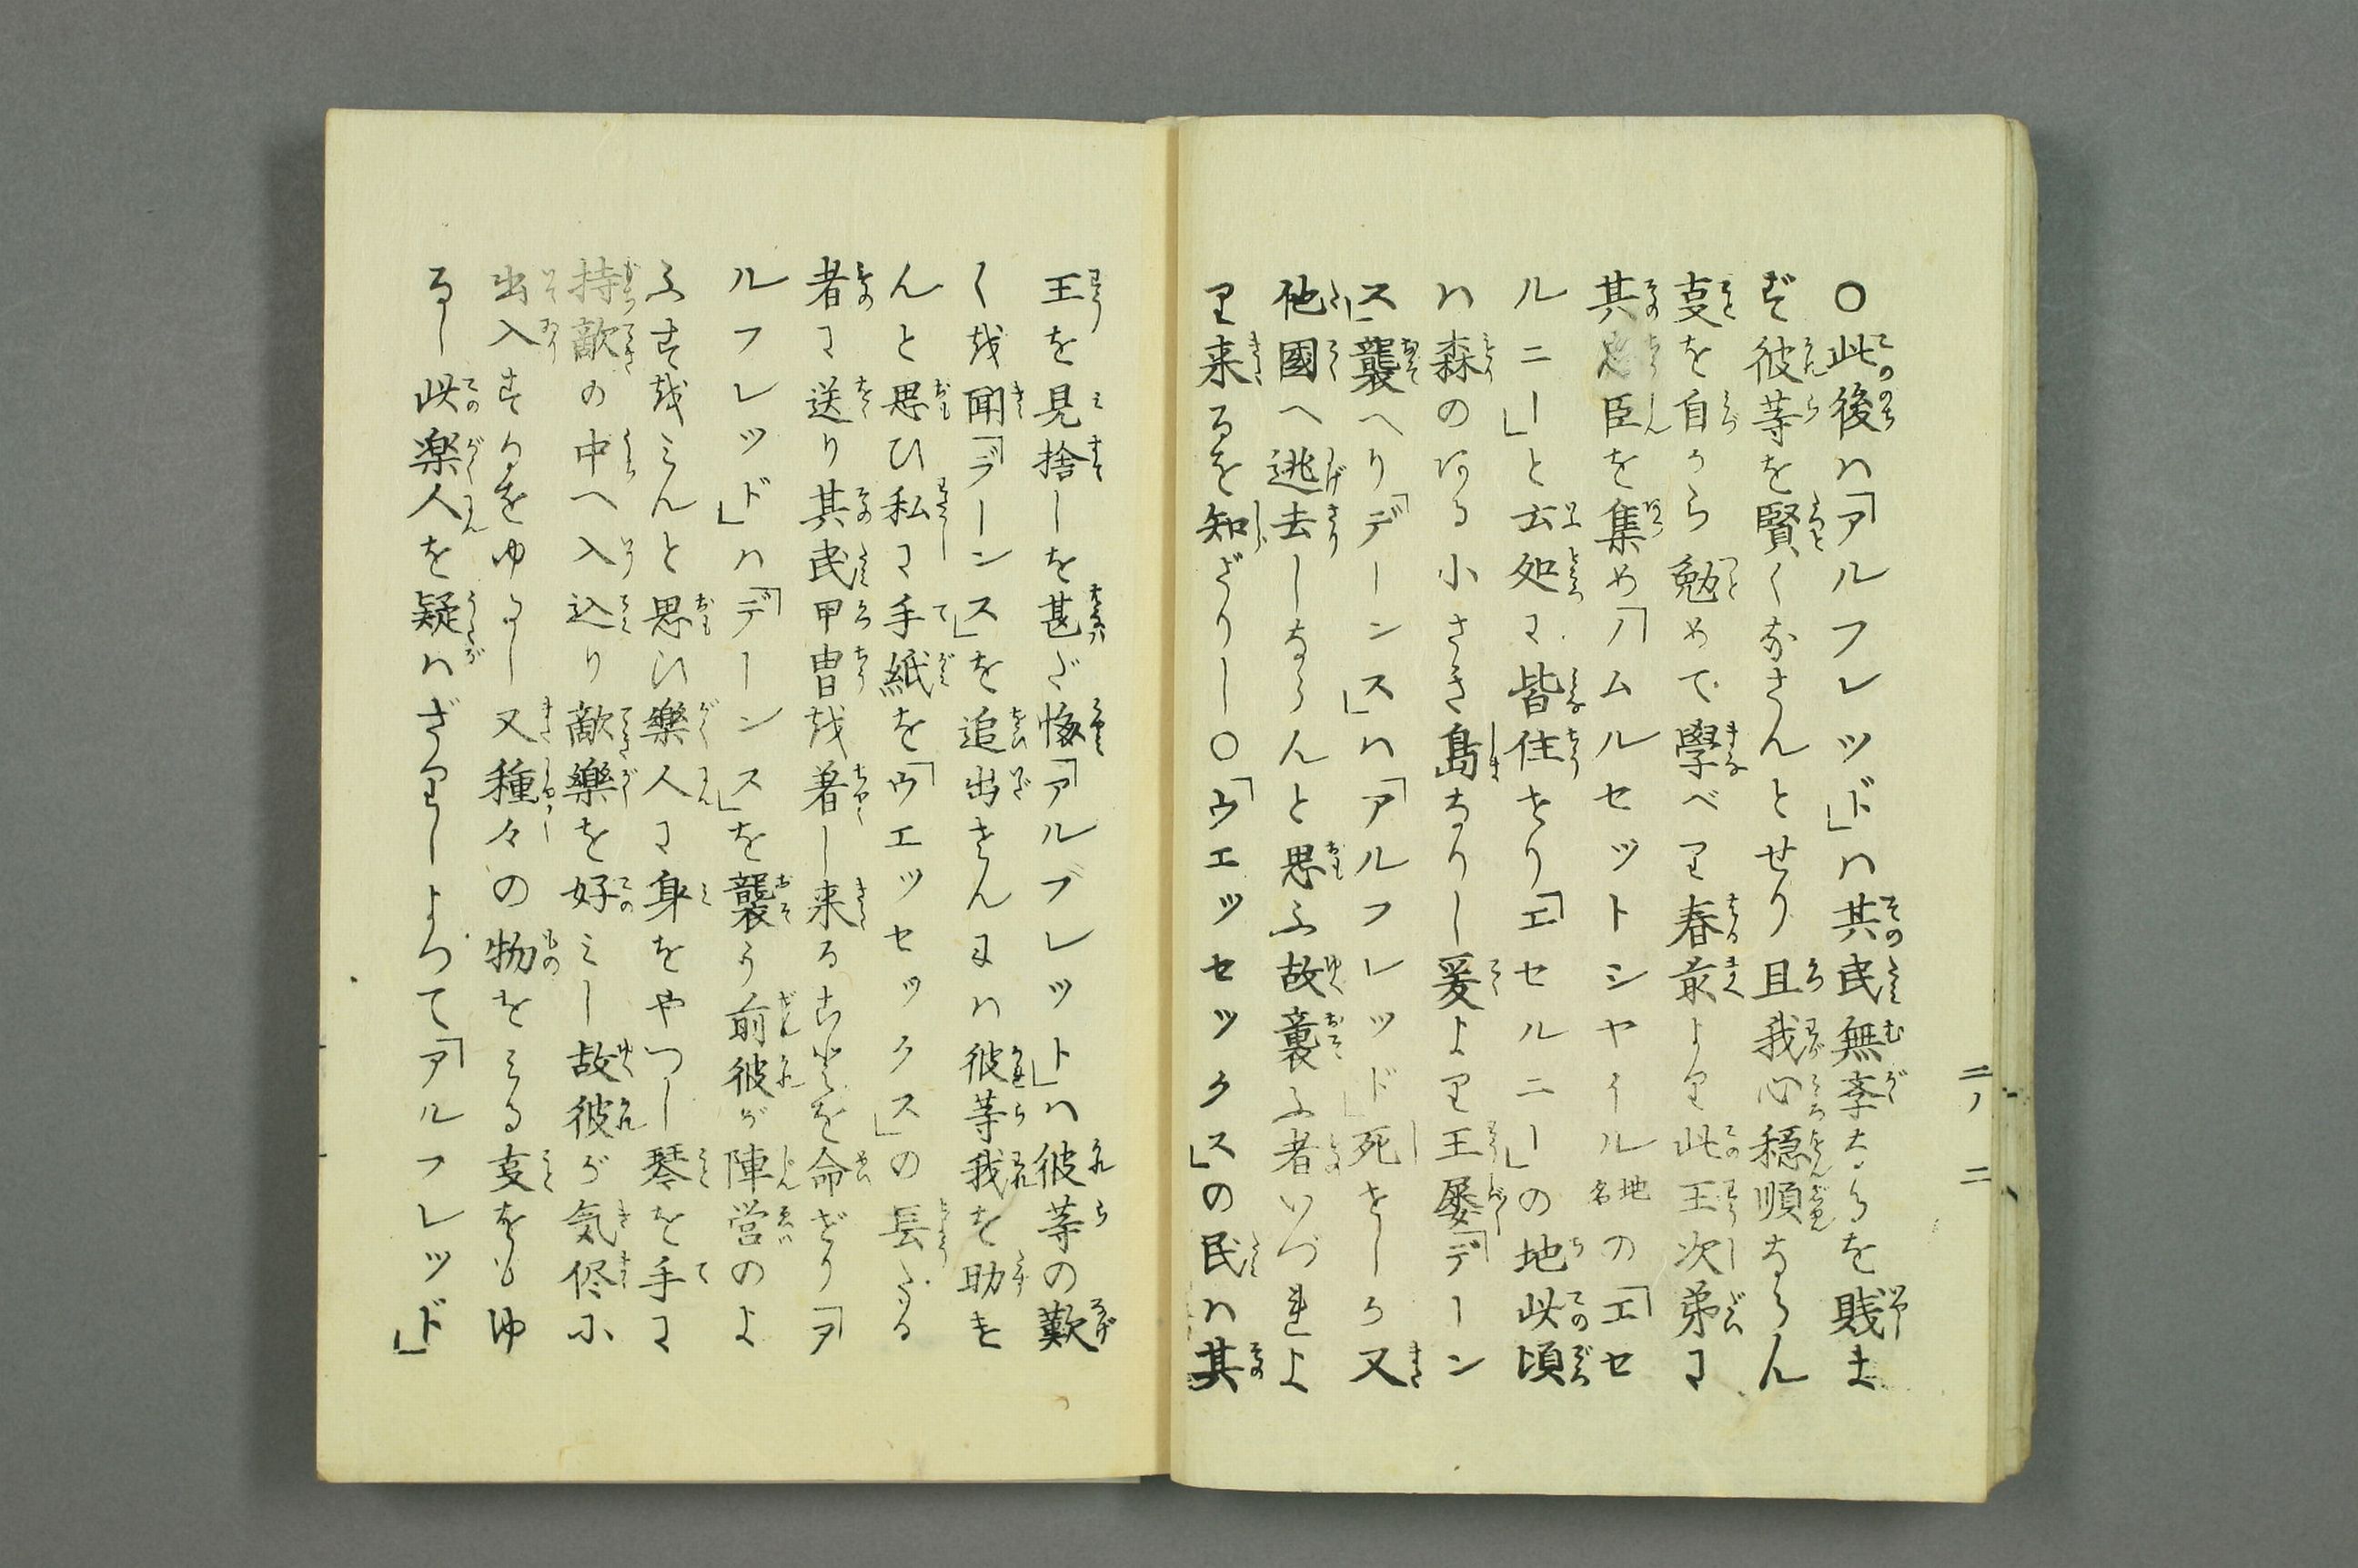 〇此後ハ「アルフレッド」ハ其民無学なるを賎ま
ず彼等を賢くなさんとせり且我心穏順ならん
支を自から勉めて學べり春最より此王次弟に
其忠臣を集め「ソムルセットシヤイル地名の「エセ
ルニー」と云処に皆住せり「エセルニー」の地此頃
ハ森のある小さき島なりし爰より王屡「デーン
ス」襲へり「デーンス」ハ「アルフレッド」死せしか又
他國へ逃去しならんと思ふ故襲ふ者いづれよ
り来るを知ざりし〇「ウエッセックス」の民ハ其
王を見捨しを甚だ悔「アルブレット」ハ彼等の歎
く𛀙聞「デーンス」を追出さんにハ彼等我を助き
んと思ひ私に手紙を「ウエッセックス」の長たる
者に送り其民甲冑を着し来るべきを命ぜり「ア
ルフレッド」ハ「デーンス」を襲う前彼が陣営のよ
ふすをみんと思い樂人に身をやつし琴を手に
持敵の中へ入込り敵樂を好みし故彼が気侭に
出入するをゆるし又種々の物をみる支をもゆ
るし此楽人を疑ハざりしよつて「アルフレッド」
二ノ二